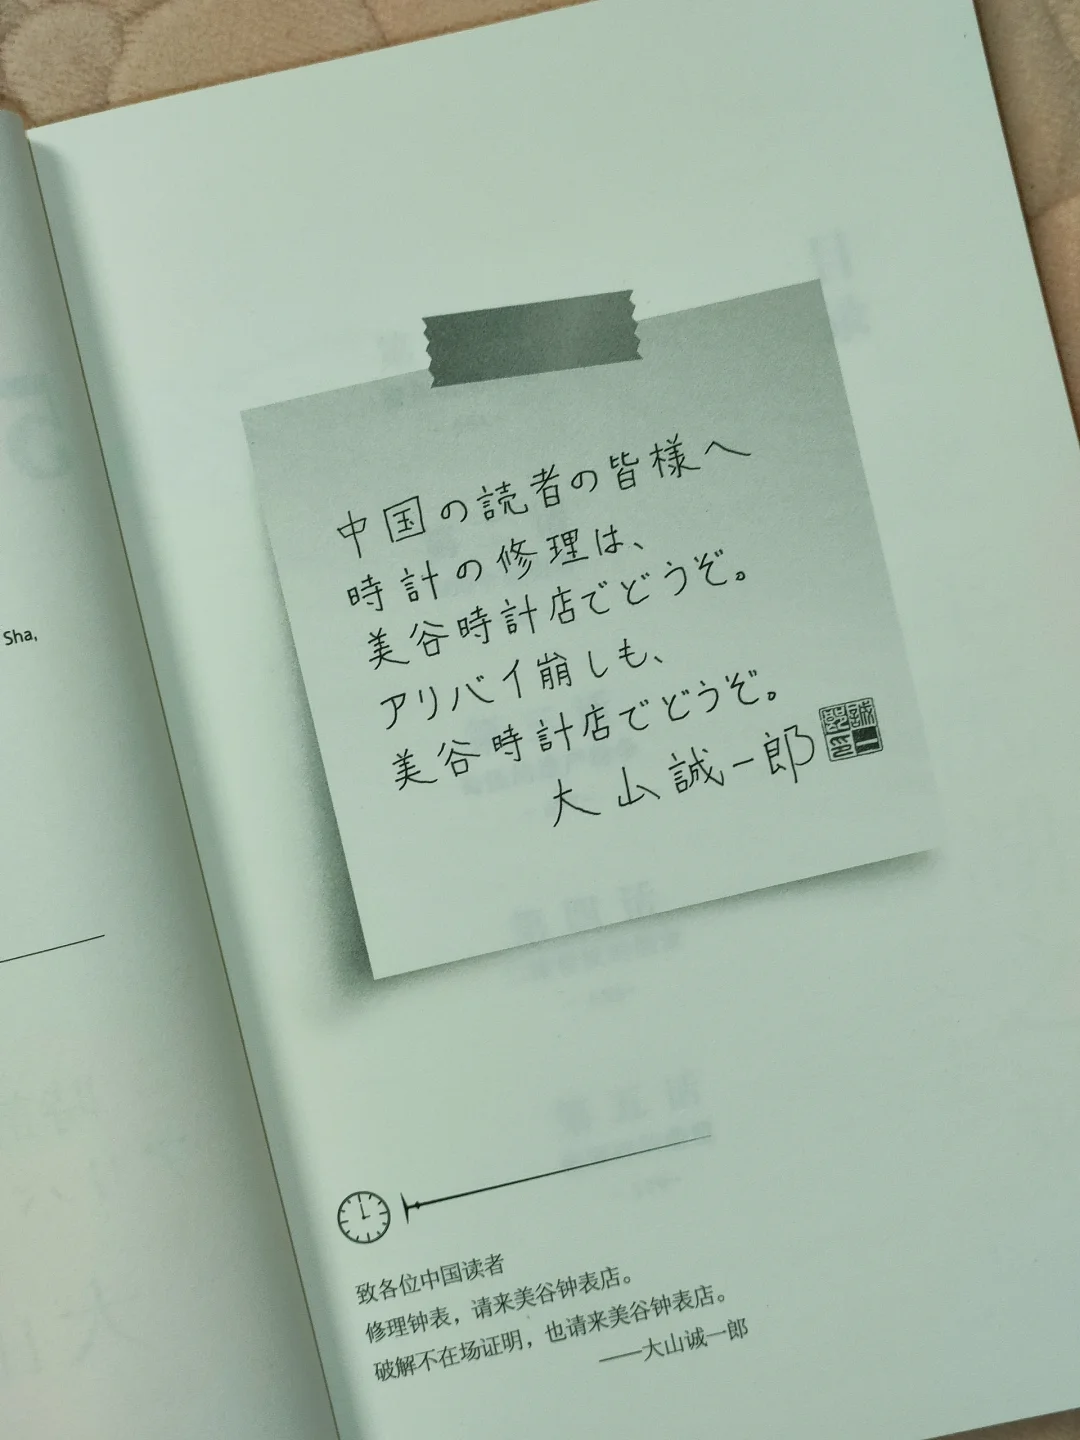 中国の読者の皆様へ
時計の修理は、
美谷時計店でどうぞ。
アリバイ崩しも、
美谷時計店でどうぞ。
大山誠一郎
Sha,
致各位中国读者
修理钟表，请来美谷钟表店。
破解不在场证明，也请来美谷钟表店。
——大山诚一郎